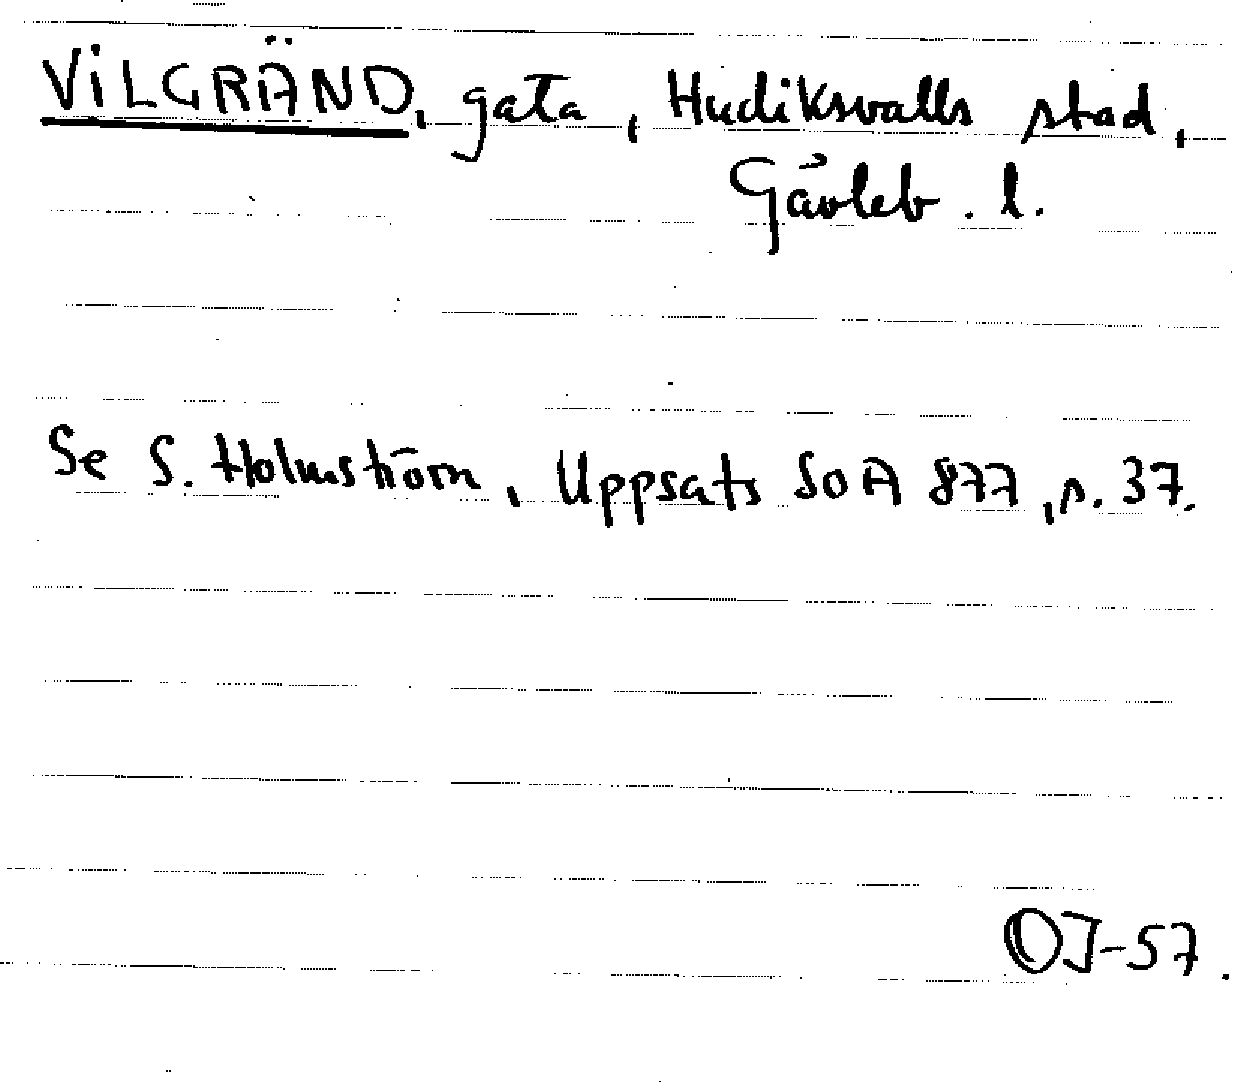 VILGRÄND, gata, Hudiksvalls stad,
Gävleb. l.
Se S. Holmström, Uppsats SOA 877, s. 37.
OJ-57.